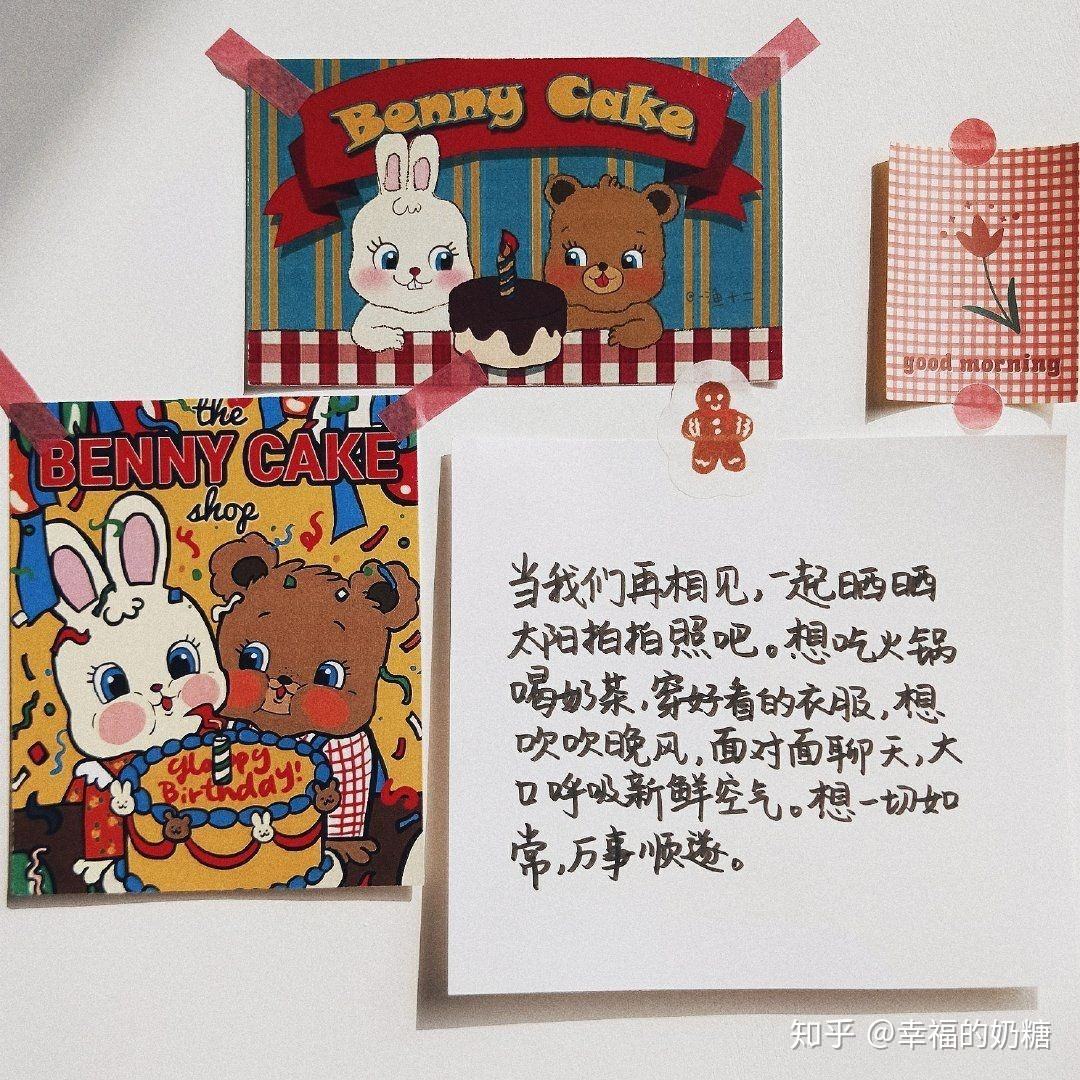 Benny Cake
@一渔十二
good morning
the
BENNY CAKE
shop
Happy
Birthday!
当我们再相见，一起晒晒
太阳拍拍照吧。想吃火锅
喝奶茶，穿好看的衣服，想
吹吹晚风，面对面聊天，大
口呼吸新鲜空气。想一切如
常，万事顺遂。
知乎 @幸福的奶糖